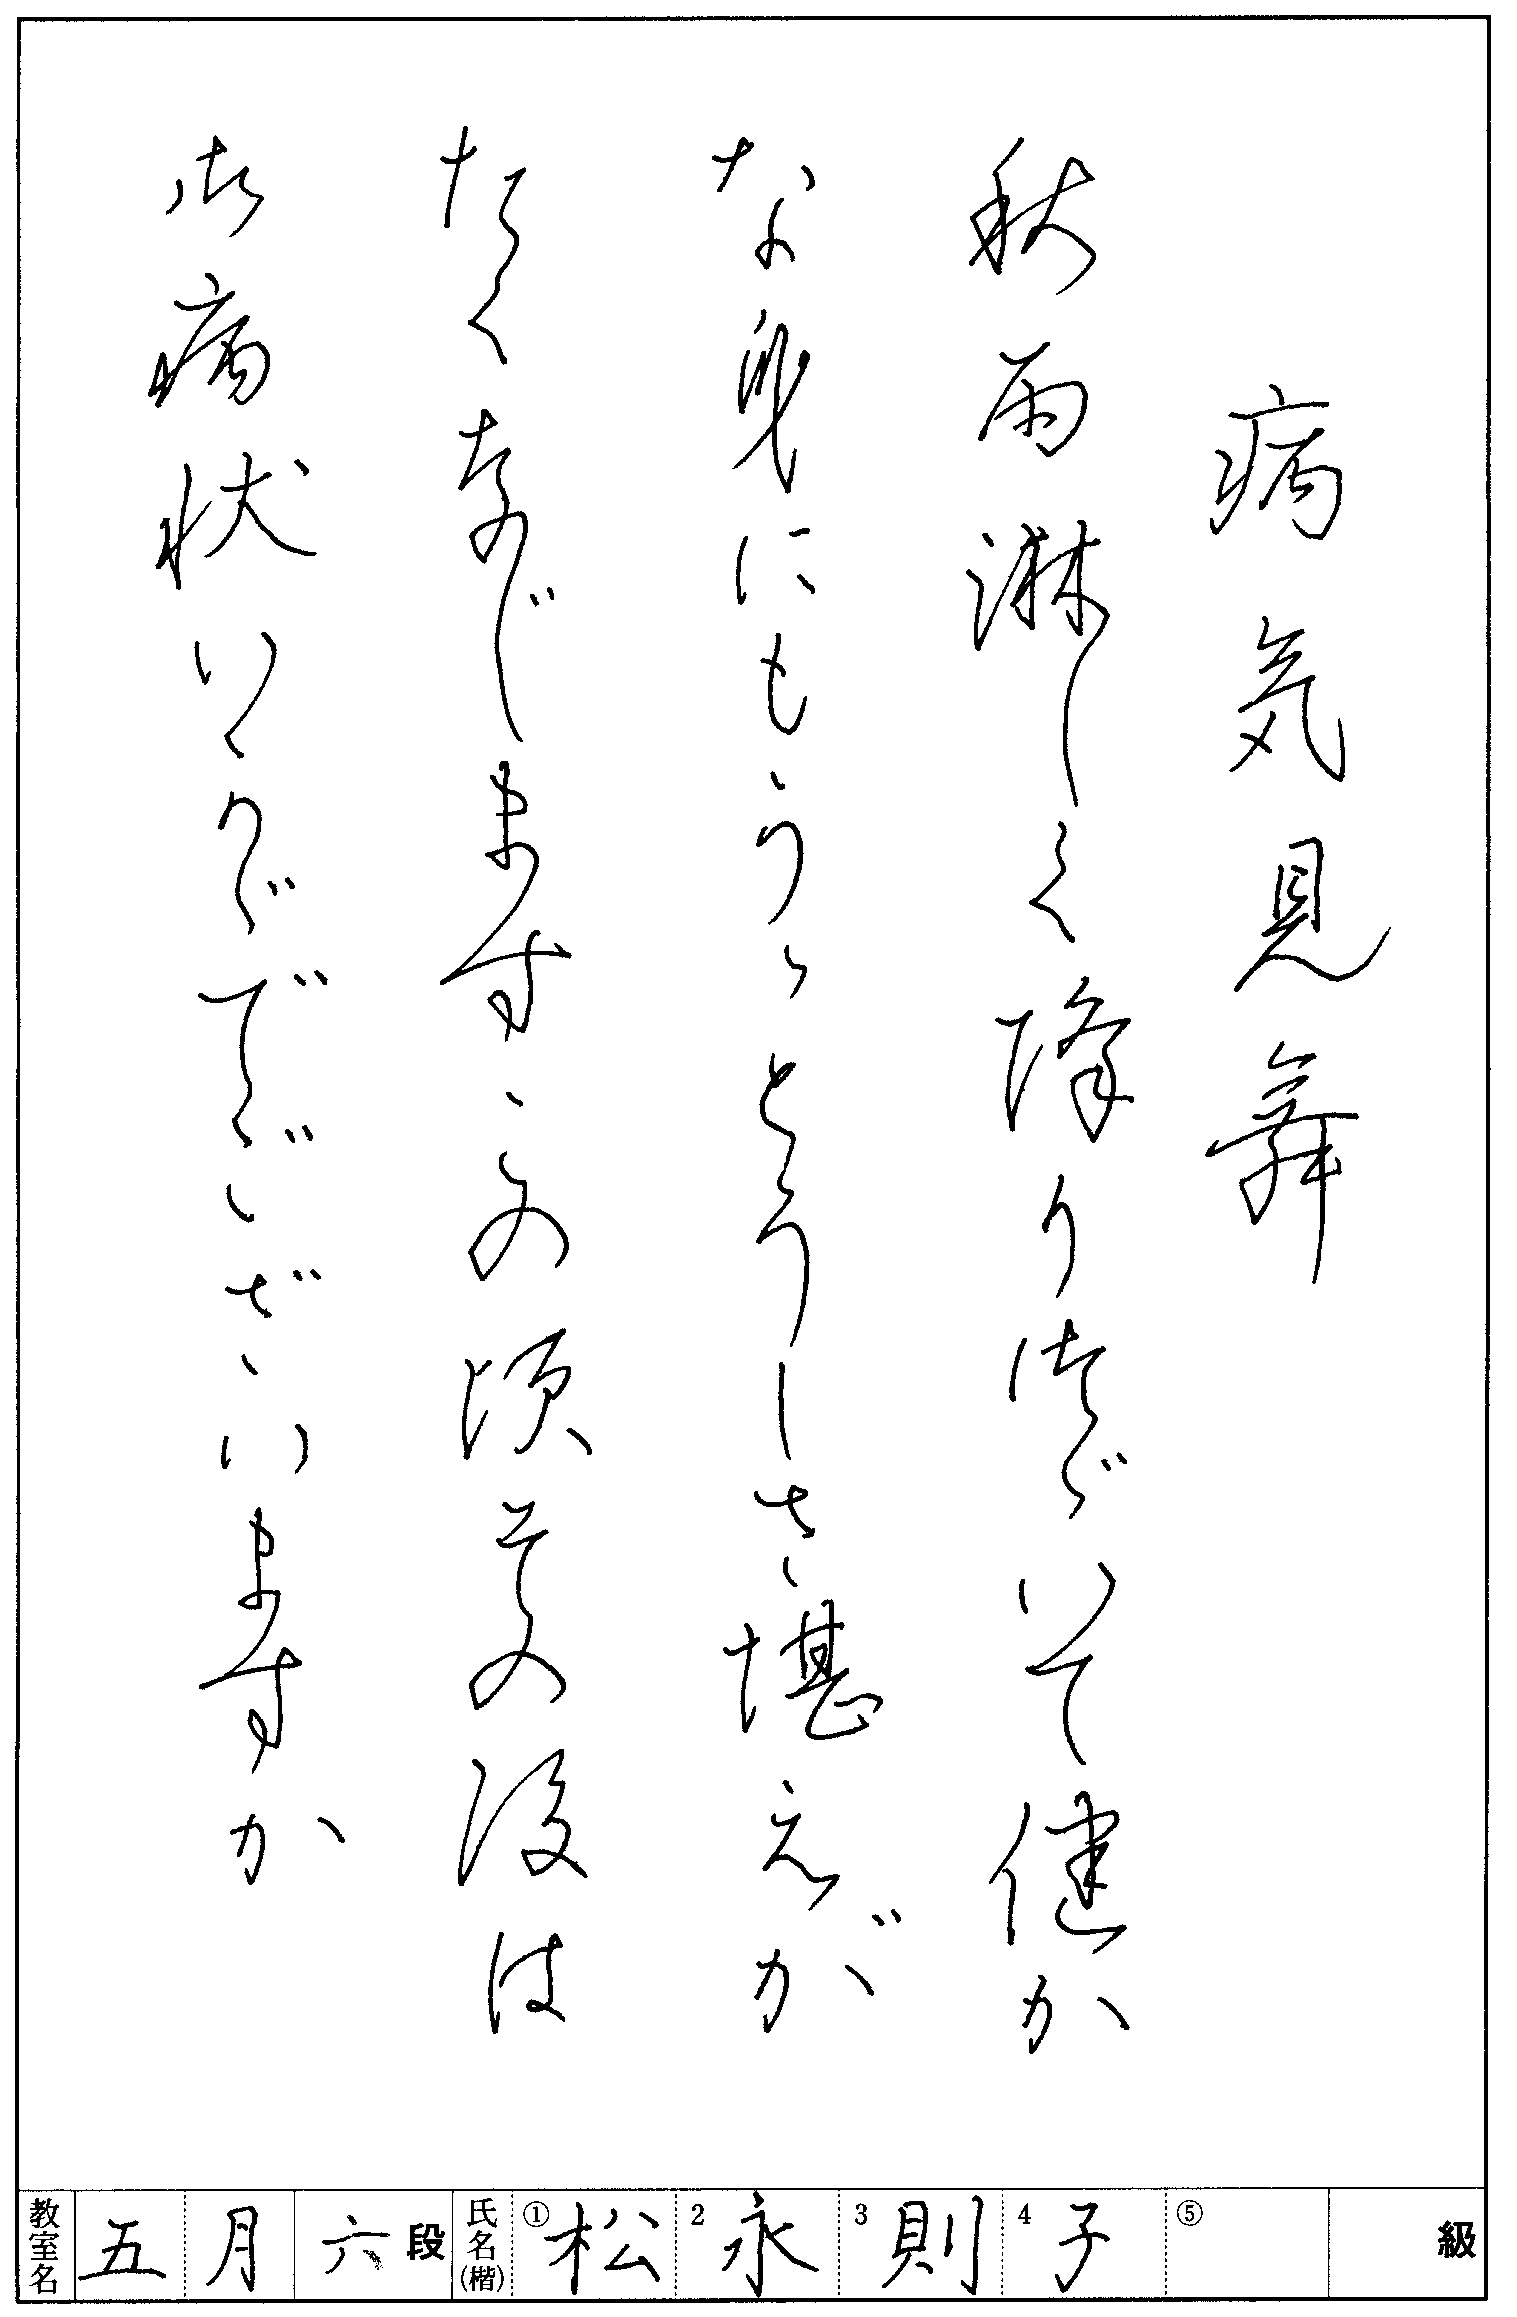 病気見舞
秋雨淋しく降りつづいて健か
な身にもうっとうしさ堪えが
たく存じますこの頃その後は
御病状いかがでございますか
教室名 五月 六段 氏名(楷) ①松 2永 3則 4子 ⑤ 級